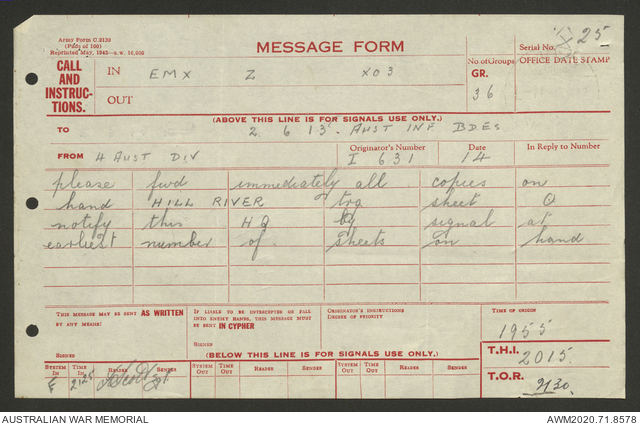 Army Form C.2136
(Pads of 100)
Reprinted May, 1943—s.w. 16,000
MESSAGE FORM
Serial No. 25
CALL AND INSTRUCTIONS.
IN EMX Z XO3
No. of Groups GR. 36
OFFICE DATE STAMP
OUT
(ABOVE THIS LINE IS FOR SIGNALS USE ONLY.)
TO 2 6 13 AUST INF BDES
Originator's Number Date In Reply to Number
FROM 4 AUST DIV I 631 14
please fwd immediately all copies on
hand HILL RIVER trg sheet Q
notify this HQ by signal at
earliest number of sheets on hand
THIS MESSAGE MAY BE SENT AS WRITTEN BY ANY MEANS:
SIGNED
IF LIABLE TO BE INTERCEPTED OR FALL INTO ENEMY HANDS, THIS MESSAGE MUST BE SENT IN CIPHER
SIGNED
ORIGINATOR'S INSTRUCTIONS
DEGREE OF PRIORITY
TIME OF ORIGIN
1955
(BELOW THIS LINE IS FOR SIGNALS USE ONLY.)
T.H.I. 2015
SYSTEM IN TIME IN READER SENDER SYSTEM OUT TIME OUT READER SENDER SYSTEM OUT TIME OUT READER SENDER
2125
T.O.R. 2130
AUSTRALIAN WAR MEMORIAL AWM2020.71.8578